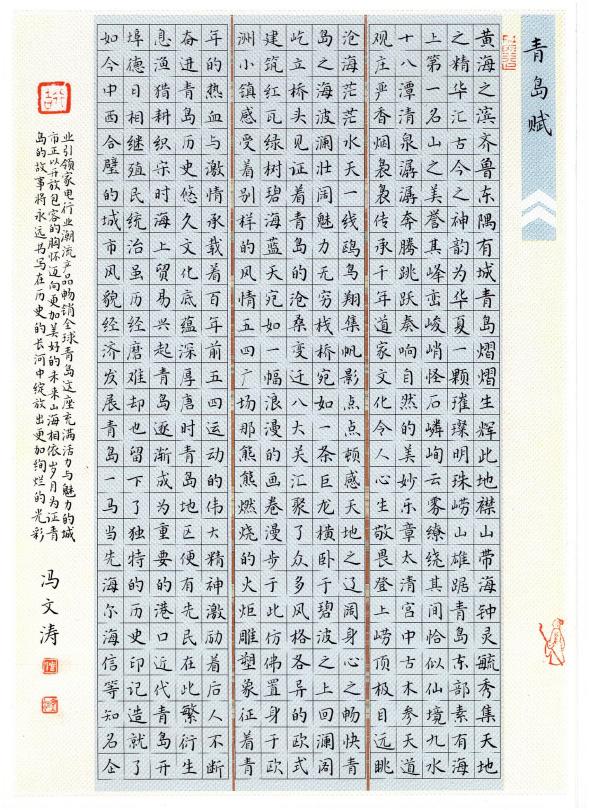 青岛赋
黄海之滨齐鲁东隅有城青岛熠熠生辉此地襟山带海钟灵毓秀集天地
之精华汇古今之神韵为华夏一颗璀璨明珠崂山雄踞青岛东部素有海
上第一名山之美誉其峰峦峻峭怪石嶙峋云雾缭绕其间恰似仙境九水
十八潭清泉潺潺奔腾跳跃奏响自然的美妙乐章太清宫中古木参天道
观庄严香烟袅袅传承千年道家文化令人心生敬畏登上崂顶极目远眺
沧海茫茫水天一线鸥鸟翔集帆影点点顿感天地之辽阔身心之畅快青
岛之海波澜壮阔魅力无穷栈桥宛如一条巨龙横卧于碧波之上回澜阁
屹立桥头见证着青岛的沧桑变迁八大关汇聚了众多风格各异的欧式
建筑红瓦绿树碧海蓝天宛如一幅浪漫的画卷漫步于此仿佛置身于欧
洲小镇感受着别样的风情五四广场那熊熊燃烧的火炬雕塑象征着青
年的热血与激情承载着百年前五四运动的伟大精神激励着后人不断
奋进青岛历史悠久文化底蕴深厚唐时青岛地区便有先民在此繁衍生
息渔猎耕织宋时海上贸易兴起青岛逐渐成为重要的港口近代青岛开
埠德日相继殖民统治虽历经磨难却也留下了独特的历史印记造就了
如今中西合璧的城市风貌经济发展青岛一马当先海尔海信等知名企
业引领家电行业潮流产品畅销全球青岛这座充满活力与魅力的城
市正以开放包容的胸怀迈向更加美好的未来山海相依岁月为证青
岛的故事将永远书写在历史的长河中绽放出更加绚烂的光彩
冯文涛